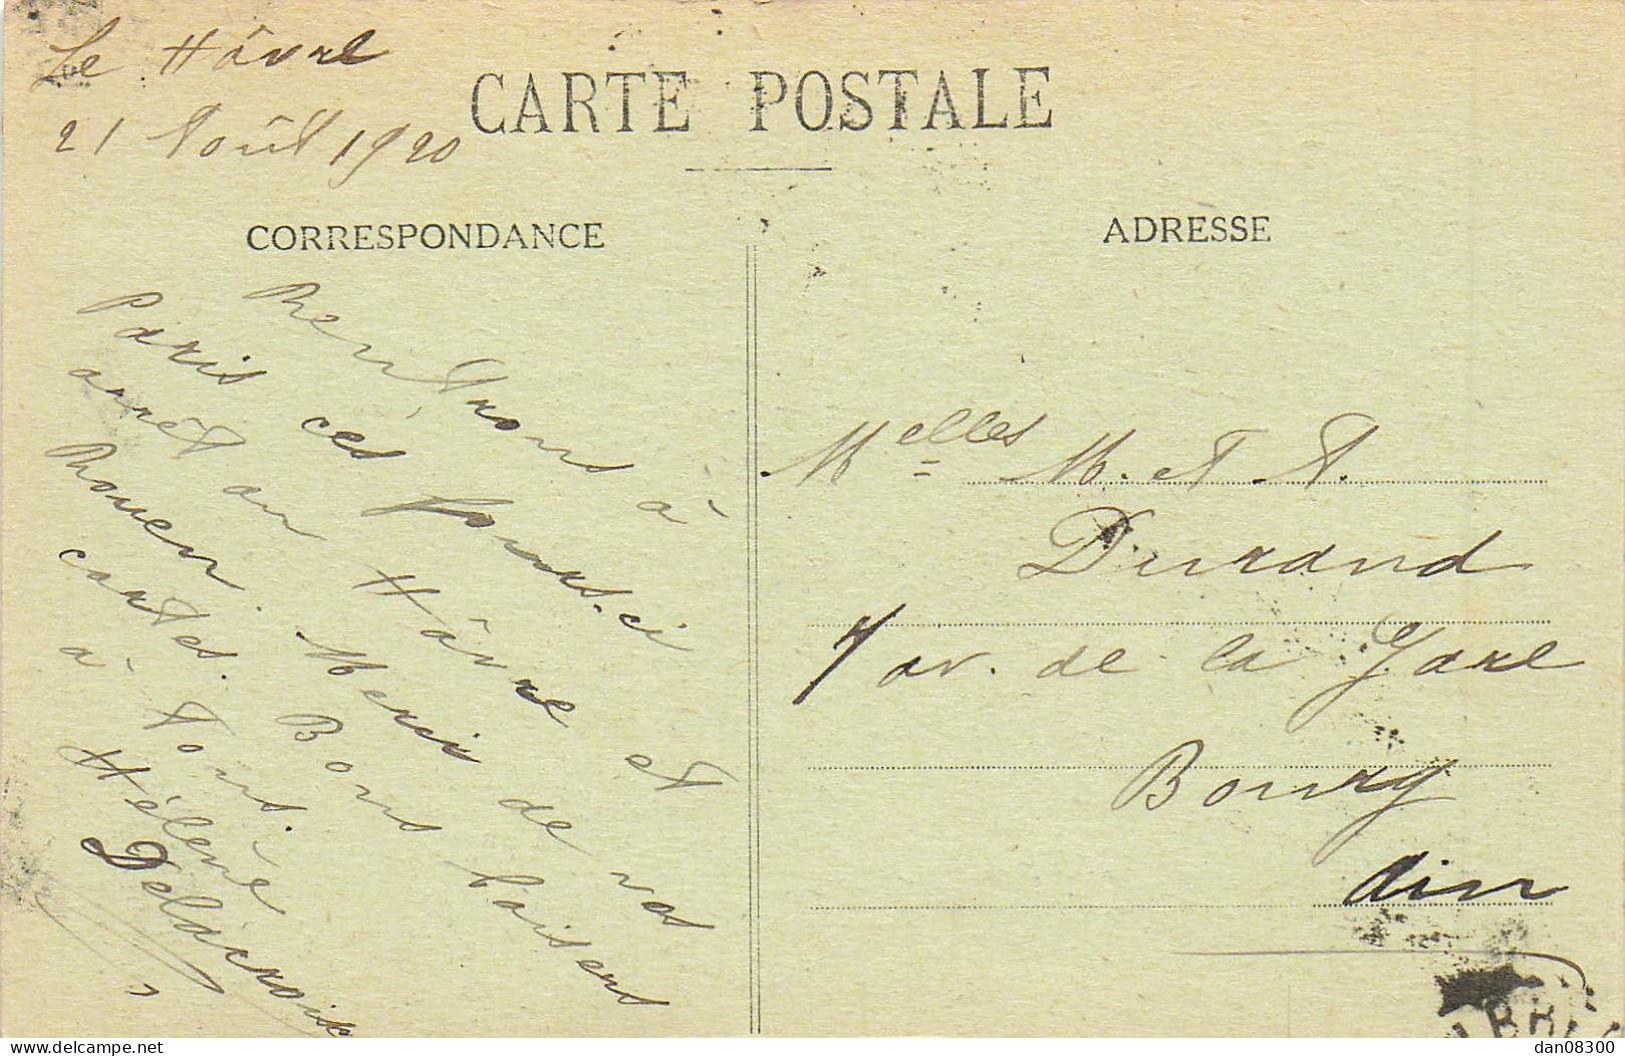 Le Hâvre
21 Août 1920
CARTE POSTALE
CORRESPONDANCE
ADRESSE
Rentrons à
Paris ces jours-ci
arrêt au Hâvre et
Rouen. Merci de vos
cartes. Bons baisers
à tous.
Hélène
Delacroix
Melles M. et A.
Durand
7 av. de la Gare
Bourg
Ain
dan08300